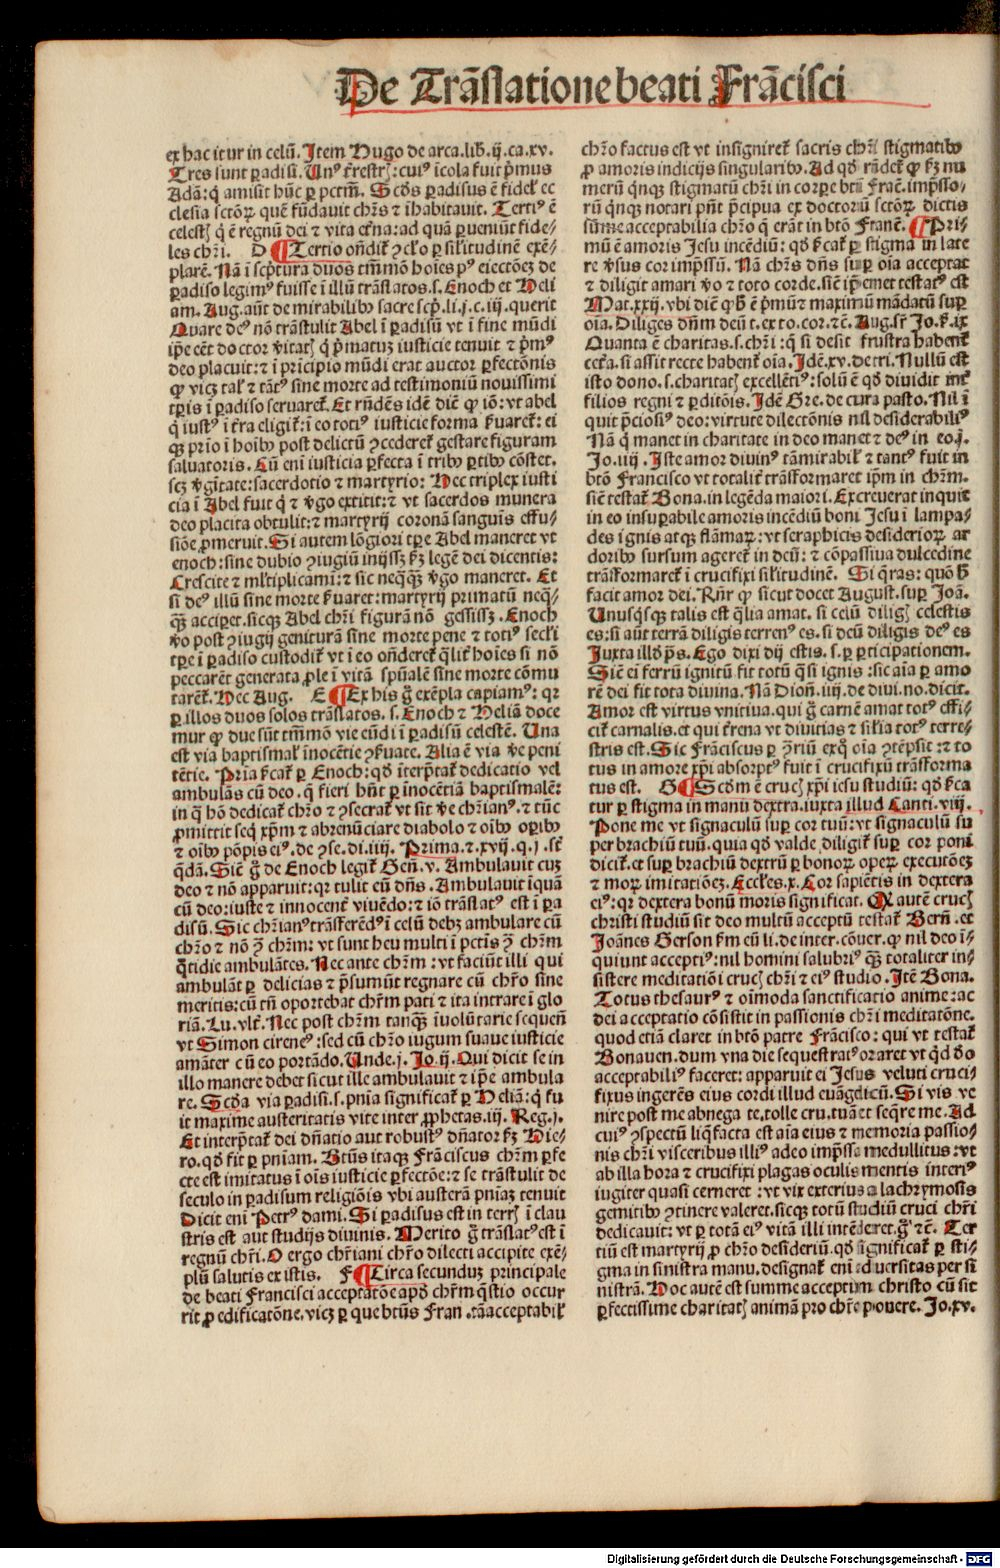 De Trãslatione beati Frãcisci
ex hac itur in celũ. Item Hugo de arca. lib. ij. ca. xv.
Tres sunt ꝑadisi. Unꝰ t̃restr̃: cuiꝰ icola fuit p̃mus
Adã: q̃ amisit hũc ꝑ pctm̃. Scd̃s ꝑadisus ẽ fidel̃ ec
clesia sctoꝝ quẽ fũdavit chr̃s ⁊ ĩhabitauit. Tertiꝰ ẽ
celesti q̃ ẽ regnũ dei ⁊ vita et̃na: ad quã ꝑueniũt fide⸗
les chr̃i. D ¶ Tertio oñdit̃ ꝯcl̃o ꝑ sil̃itudinẽ exẽ⸗
plarẽ. Nã ĩ scp̃tura duos tm̃mõ hoĩes pꝰ eiectõeꝫ de
ꝑadiso legimꝰ fuisse ĩ illũ trãslatos. s. Enoch et Heli
am. Aug. aũt de mirabilibꝰ sacre scp̃. li. j. c. iij. querit
Quare deꝰ nõ trãstulit Abel ĩ ꝑadisũ vt ĩ fine mũdi
ip̃e eẽt doctor v̓itatꝭ q̃ p̃matuꝫ iusticie tenuit ⁊ p̃mꝰ
deo placuit: ⁊ ĩ prĩcipio mũdi erat auctor ꝑfectõnis
ꝙ vicꝫ tal̃ ⁊ tãtꝰ sine morte ad testimoniũ nouissimi
tp̃is ĩ ꝑadiso seruaret̃. Et rñdẽs idẽ diẽ ꝙ iõ: vt abel
q̃ iustꝰ ĩ t̃ra eligit̃: ĩ eo totiꝰ iusticie forma f̃uaret̃: ei
qꝫ prĩo ĩ hoĩbꝰ post delictũ ꝯcederet̃ gestare figuram
saluatoris. Cũ enĩ iusticia ꝑfecta ĩ tribꝰ ꝑtibꝰ cõstet.
scꝫ v̓gĩtate: sacerdotio ⁊ martyrio: Hec triplex iusti
cia ĩ Abel fuit q̃ ⁊ v̓go extitit: ⁊ vt sacerdos munera
deo placita obtulit: ⁊ martyrij coronã sanguĩs effu⸗
siõe ꝓmeruit. Si autem lõgiori tp̃e Abel maneret vt
enoch: sine dubio ꝯiugiũ inijssꝫ fꝫ legẽ dei dicentis:
Crescite ⁊ ml̃tiplicamĩ: ⁊ sic neqꝙ̃ v̓go maneret. Et
si deꝰ illũ sine morte f̃uaret: martyrij primatũ neq̃⸗
qꝙ̃ acciperet. sicqꝫ Abel chr̃i figurã nõ gessissꝫ. Enoch
v̓o post ꝯiugij geniturã sine morte pene ⁊ totiꝰ sec̃li
tp̃e ĩ ꝑadiso custodit̃ vt ĩ eo oñderet̃ q̃lit̃ hoĩes si nõ
peccarẽt generata ꝓle ĩ vitã spũalẽ sine morte cõmu
tarẽt̃. Hec Aug. E ¶ Ex his g̃ exẽpla capiamꝰ: qꝛ
ꝑ illos duos solos trãslatos. s. Enoch ⁊ Heliã doce
mur ꝙ due sũt tm̃mõ vie eũdi ĩ ꝑadisũ celestẽ. Una
est via baptismal̃ ĩnocẽtie ꝯf̃uate. Alia ẽ via v̓e peni
tẽtie. Prĩa f̃cat̃ ꝑ Enoch: qd̃ ĩterp̃tat̃ dedicatio vel
ambulãs cũ deo. q̃ fieri hñt ꝑ inocẽtiã baptismalẽ:
in q̃ hõ dedicat̃ chr̃o ⁊ ꝯsecrat̃ vt sit v̓e chr̃ianꝰ. ⁊ tũc
ꝓmittit seq̃ xp̃m ⁊ abrenũciare diabolo ⁊ oĩbꝰ opĩbꝰ
⁊ oĩbꝰ põpis eiꝰ. de ꝯse. di. iiij. Prima. ⁊. xvij. q. j. st̃
qdã. Siẽ g̃ de Enoch legit̃ Geñ. v. Ambulauit cuꝫ
deo ⁊ nõ apparuit: qꝛ tulit eũ dñs. Ambulauit ĩquã
cũ deo: iuste ⁊ innocent̃ viuẽdo: ⁊ iõ trãslatꝰ est ĩ ꝑa
disũ. Sic chr̃ianꝰ trãsferẽdꝰ ĩ celũ debꝫ ambulare cũ
chr̃o ⁊ nõ ꝯ̃ chr̃m: vt sunt heu multi ĩ pctĩs ꝯ̃ chr̃m
q̃tidie ambulãtes. Nec ante chr̃m: vt faciũt illi qui
ambulãt ꝑ delicias ⁊ p̃sumũt regnare cũ chr̃o sine
meritis: cũ tñ oportebat chr̃m pati ⁊ ita intrare ĩ glo
riã. Lu. vlt̃. Nec post chr̃m tanqꝙ̃ ĩuolũtarie sequeñ
vt Simon cireneꝰ: sed cũ chr̃o iugum suaue iusticie
amãter cũ eo portãdo. Unde. j. Jo. ij. Qui dicit se in
illo manere debet sicut ille ambulauit ⁊ ip̃e ambula
re. Scd̃a via ꝑadisi. s. pñĩa significat̃ ꝑ Heliã: q̃ fu
it maxime austeritatis vite inter ꝓphetas. iij. Reg. j.
Et interp̃tat̃ dei dñatio aut robustꝰ dñator fꝫ Hie⸗
ro. qd̃ fit ꝑ pnĩam. Btũs itaqꝫ Frãciscus chr̃m ꝑfe
cte est imitatus ĩ oĩs iusticie ꝑfectõe: ⁊ se trãstulit de
seculo in ꝑadisum religiõis vbi austerã pnĩaꝫ tenuit
Dicit enĩ Petrꝰ dami. Si ꝑadisus est in terrꝭ ĩ clau
stris est aut studijs diuinis. Merito g̃ trãslatꝰ est ĩ
regnũ chr̃i. O ergo chr̃iani chr̃o dilecti accipite exẽ⸗
plũ salutis ex istis. F ¶ Circa secunduꝫ principale
de beati Francisci acceptatõe apd̃ chr̃m q̃stio occur
rit ꝓ edificatõne. vicꝫ ꝑ que btũs Fran. tã acceptabil̃
chr̃o factus est vt insigniret̃ sacris chr̃i stigmatibꝰ
ꝓ amoris indicijs singularibꝰ. Ad qd̃ rñdet̃ ꝙ fꝫ nu
merũ q̃nqꝫ stigmatũ chr̃i in corꝑe bti Frãc. imp̃sso⸗
rũ q̃nqꝫ notari pñt p̃cipua ex doctorũ sctoꝝ dictis
sũme acceptabilia chr̃o q̃ erãt in btõ Franẽ. ¶ Pri⸗
mũ ẽ amoris Jesu incẽdiũ: qd̃ f̃cat̃ ꝑ stigma in late
re v̓sus cor imp̃ssũ. Nã chr̃s dñs suꝑ oĩa acceptat
⁊ diligit amari v̓o ⁊ toto corde. siẽ ip̃emet testatꝰ est
Mat. xxij. vbi diẽ ꝙ h̃ ẽ p̃mũ ⁊ maximũ mãdatũ suꝑ
oĩa. Diliges dñm deũ t. ex to. cor. ⁊c̃. Aug. sr̃ Jo. f̃. ix
Quanta ẽ charitas. s. chr̃i: q̃ si desit frustra habent̃
cet̃a. si assit recte habent̃ oĩa. Idẽ. xv. de tri. Nullũ est
isto dono. s. charitatꝭ excellẽtiꝰ: solũ ẽ qd̃ diuidit int̃
filios regni ⁊ ꝑditõis. Idẽ Gre. de cura pasto. Nil ĩ
quit p̃ciosiꝰ deo: virtute dilectõnis nil desiderabiliꝰ
Nã q̃ manet in charitate in deo manet ⁊ deꝰ in eo. j.
Jo. iiij. Iste amor diuinꝰ tã mirabil̃ ⁊ tantꝰ fuit in
btõ Francisco vt totalit̃ trãsformaret ip̃m in chr̃m.
siẽ testat̃ Bona. in legẽda maiori. Excreuerat inquit
in eo insuꝑabile amoris incẽdiũ boni Jesu ĩ lampa⸗
des ignis atqꝫ flãmaꝝ: vt seraphicis desiderioꝝ ar
doribꝰ sursum ageret̃ in deũ: ⁊ cõpassiua dulcedine
trãsformaret̃ ĩ crucifixi sil̃itudinẽ. Si q̃ras: quõ h̃
facit amor dei. Rñr ꝙ sicut docet August. suꝑ Joã.
Unusq̃sqꝫ talis est q̃lia amat. si celũ diligꝭ celestis
es: si aũt terrã diligis terrenꝰ es. si deũ diligis deꝰ es
Juxta illd̃ ps̃. Ego dixi dij estis. s. ꝑ ꝑticipationem.
Siẽ ei ferrũ ignitũ fit totũ q̃si ignis: sic aĩa ꝑ amo
rẽ dei fit tota diuina. Nã Dioñ. iiij. de diui. no. dicit.
Amor est virtus vnitiua. qui g̃ carnẽ amat totꝰ effi⸗
cit̃ carnalis. et qui t̃rena vt diuitias ⁊ sil̃ia totꝰ terre⸗
stris est. Sic Frãciscus ꝑ ꝯriũ exq̃ oĩa ꝯtẽpsit: ⁊ to
tus in amore xp̃i absorptꝰ fuit ĩ crucifixũ trãsforma
tus est. G ¶ Scd̃m ẽ crucꝭ xp̃i iesu studiũ: qd̃ f̃ca
tur ꝑ stigma in manũ dextra. iuxta illud Canti. viij.
Pone me vt signaculũ suꝑ cor tuũ: vt signaculũ su
per brachiũ tuũ. quia qd̃ valde diligit̃ suꝑ cor poni
dicit̃. et suꝑ brachiũ dextrũ ꝑ bonoꝝ opeꝝ executõeꝫ
⁊ moꝝ imitatiõeꝫ. Eccl̃es. x. Cor sapiẽtis in dextera
eiꝰ: qꝛ dextera bonũ moris significat. Q̃ autẽ crucꝭ
christi studiũ sit deo multũ acceptũ testat̃ Berñ. et
Joãnes Gerson f̃m eũ li. de inter. cõuer. ꝙ nil deo ĩ⸗
quiunt acceptiꝰ: nil homini salubriꝰ qꝙ̃ totaliter in⸗
sistere meditatiõi crucꝭ chr̃i ⁊ eiꝰ studio. Itẽ Bona.
Totus thesaurꝰ ⁊ oĩmoda sanctificatio anime: ac
dei acceptatio cõsistit in passionis chr̃i meditatõne.
quod etiã claret in btõ patre Frãcisco: qui vt testat̃
Bonauen. dum vna die sequestratꝰ oraret vt q̃d d̃o
acceptabiliꝰ faceret: apparuit ei Jesus veluti cruci⸗
fixus ingerẽs eius cordi illud euãgelicũ. Si vis ve
nire post me abnega te. tolle cru. tuã et seq̃re me. Ad
cuiꝰ ꝯspectũ liq̃facta est aĩa eius ⁊ memoria passio⸗
nis chr̃i visceribus illiꝰ adeo imp̃ssa medullitus: vt
ab illa hora ⁊ crucifixi plagas oculis mentis interiꝰ
iugiter quasi cerneret: vt vix exterius a lachrymosis
gemitibꝰ ꝯtinere valeret. sicqꝫ totũ studiũ cruci chr̃i
dedicauit: vt ꝑ totã eiꝰ vitã illi intẽderet. g̃ ⁊c̃. Ter
tiũ est martyrij ꝓ chr̃o desideriũ. qd̃ significat̃ ꝑ sti⸗
gma in sinistra manu. designat̃ enĩ aduersitas per si
nistrã. Hoc autẽ est summe acceptum christo cũ sit
ꝑfectissime charitatꝭ animã pro chr̃o ponere. Jo. xv.
Digitalisierung gefördert durch die Deutsche Forschungsgemeinschaft - DFG